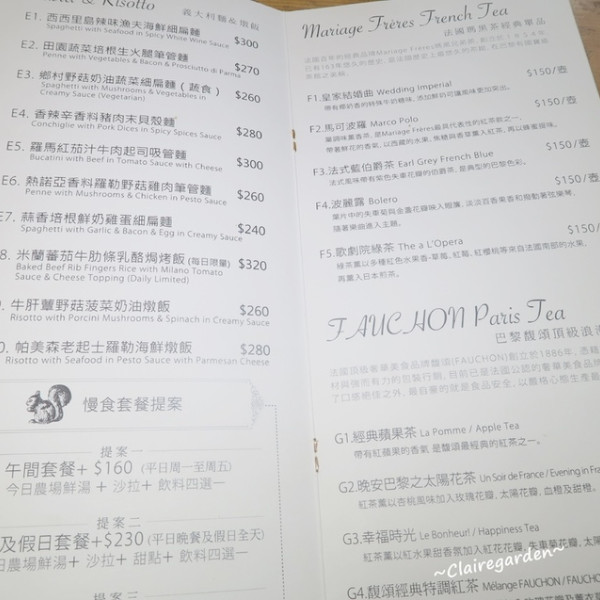 & Risotto 義大利麵&燉飯
E1. 西西里島辣味漁夫海鮮細扁麵 $300
Spaghetti with Seafood in Spicy White Wine Sauce
E2. 田園蔬菜培根生火腿筆管麵 $270
Penne with Vegetables Bacon & Prosciutto di Parma
E3. 鄉村野菇奶油蔬菜細扁麵(蔬食) $260
Spaghetti with Mushrooms & Vegetables in
Creamy Sauce (Vegetarian)
E4. 香辣辛香料豬肉末貝殼麵 $280
Conchiglie with Pork Dices in Spicy Spices Sauce
E5. 羅馬紅茄汁牛肉起司吸管麵 $300
Bucatini with Beef in Tomato Sauce with Cheese
E6. 熱諾亞香料羅勒野菇雞肉筆管麵 $260
Penne with Mushrooms & Chicken in Pesto Sauce
E7. 蒜香培根鮮奶雞蛋細扁麵 $240
Spaghetti with Garlic & Bacon & Egg in Creamy Sauce
8. 米蘭蕃茄牛肋條乳酪焗烤飯 (每日限量) $320
Baked Beef Rib Fingers Rice with Milano Tomato
Sauce & Cheese Topping (Daily Limited)
9. 牛肝蕈野菇菠菜奶油燉飯 $260
Risotto with Porcini Mushrooms & Spinach in Creamy Sauce
0. 帕美森老起士羅勒海鮮燉飯 $280
Risotto with Seafood in Pesto Sauce with Parmesan Cheese
慢食套餐提案
提案一
午間套餐+ $160 (平日周一至周五)
今日農場鮮湯 + 沙拉+ 飲料四選一
提案二
及假日套餐+$230 (平日晚餐及假日全天)
農場鮮湯 + 沙拉+ 甜點+ 飲料四選一
提案三
Mariage Frères French Tea
法國瑪黑茶經典單品
F1.皇家結婚曲 Wedding Imperial $150/壺
F2.馬可波羅 Marco Polo $150/壺
F3.法式藍伯爵茶 Earl Grey French Blue $150/壺
法式風味帶有紫色矢車花瓣的伯爵茶, 是典型的巴黎色彩。
F4.波麗露 Bolero $150/壺
隨著樂曲進入主題。
F5.歌劇院綠茶 The a L'Opera $150/
再薰入日本煎茶。
FAUCHON Paris Tea
巴黎馥頌頂級浪
法國頂級奢華美食品牌馥頌(FAUCHON)創立於1886年,
G1.經典蘋果茶 La Pomme / Apple Tea
帶有紅蘋果的香氣 是馥頌最經典的紅茶之一。
G2.晚安巴黎之太陽花茶 Un Soir de France / Evening in Fran
紅茶薰以杏桃風味加入玫瑰花瓣, 太陽花瓣, 血橙及甜橙。
G3.幸福時光 Le Bonheur! / Happiness Tea
G4.馥頌經典特調紅茶 Mélange FAUCHON / FAUCH
~Clairegarden~